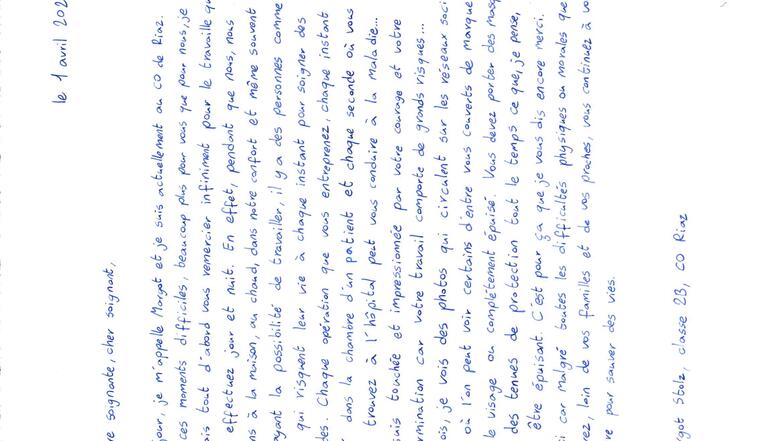 le 1 avril 202
e soignante, cher soignant,
jour, je m'appelle Margot et je suis actuellement au CO de Riaz.
ces moments difficiles, beaucoup plus pour vous que pour nous, je
is tout d'abord vous remercier infiniment pour le travaille qu
effectuez jour et nuit. En effet, pendant que nous, nous
s à la maison, au chaud, dans notre confort et même souvent
yant la possibilité de travailler, il y a des personnes comme
qui risquent leur vie à chaque instant pour soigner des
des. Chaque opération que vous entreprenez, chaque instant
dans la chambre d'un patient et chaque seconde où vous
trouvez à l'hôpital peut vous conduire à la maladie...
suis touchée et impressionnée par votre courage et votre
rmination car votre travail comporte de grands risques...
ois, je vois des photos qui circulent sur les réseaux soci
où l'on peut voir certains d'entre vous couverts de marque
le visage ou complètement épuisé. Vous devez porter des masq
des tennues de protection tout le temps ce que, je pense,
être épuisant. C'est pour ça que je vous dis encore merci.
i car malgré toutes les difficultés physiques ou morales que
rez, loin de vos familles et de vos proches, vous continuez à vo
re pour sauver des vies.
got Stolz, classe 2B, CO Riaz